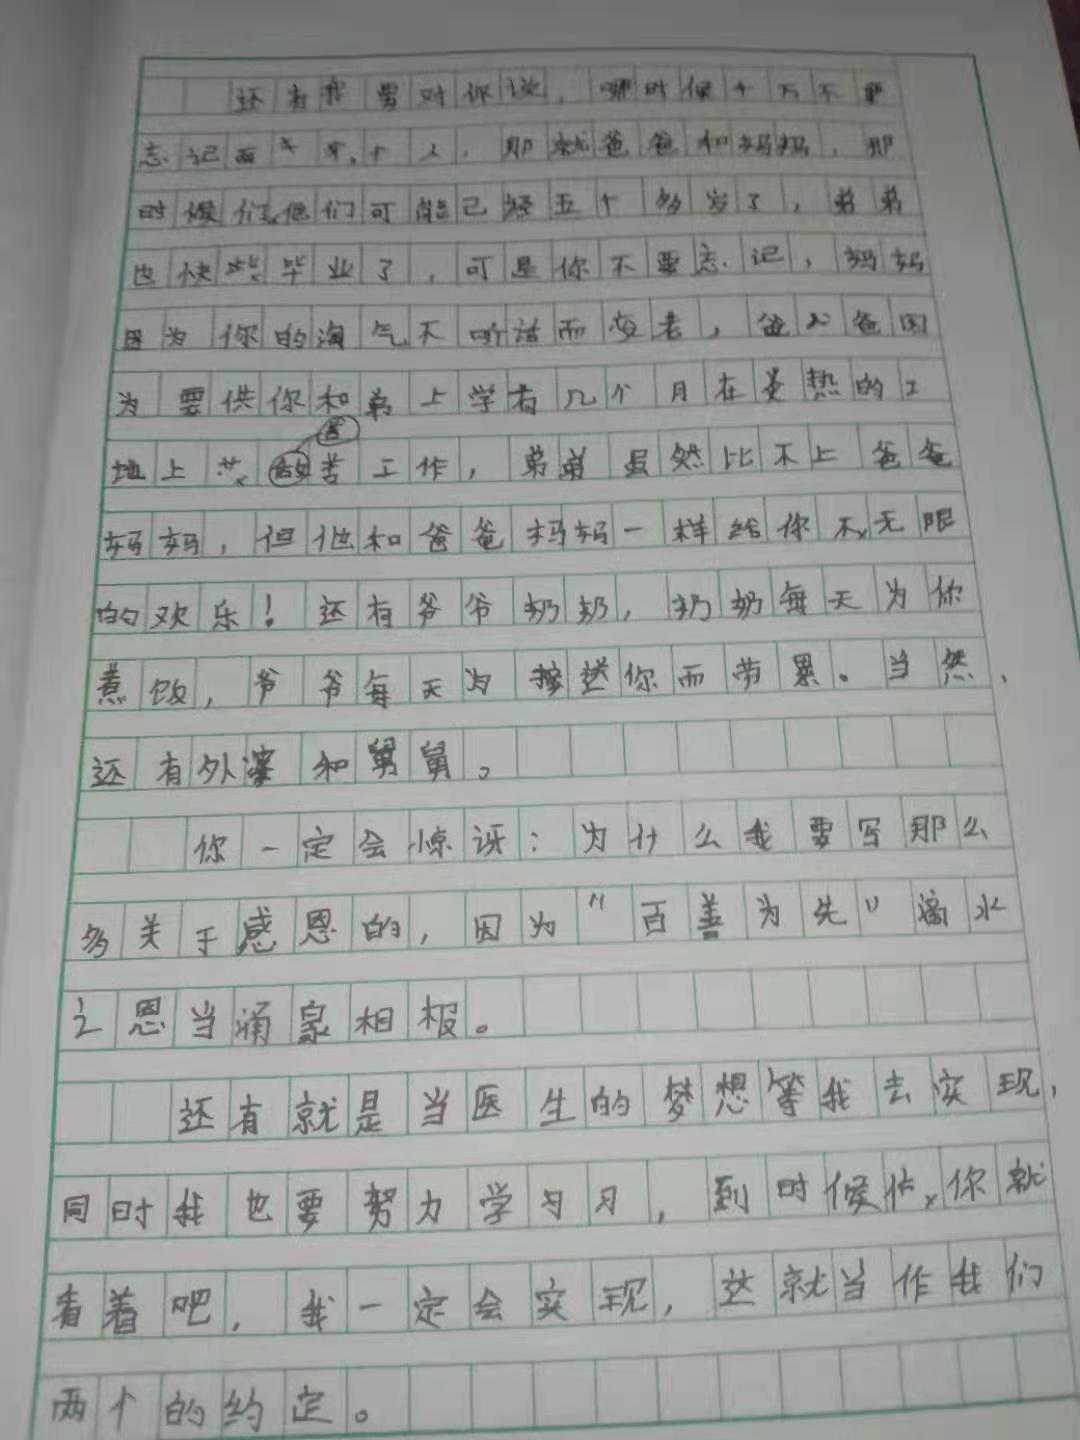 还有我要对你说,哪时候千万不要
忘记两个人,那就爸爸和妈妈,那
时候们他们可能已经五十多岁了,弟弟
也快毕业了,可是你不要忘记,妈妈
因为你的淘气不听话而变老,爸爸因
为要供你和弟上学有几个月在炎热的工
地上苦工作,弟弟虽然比不上爸爸
妈妈,但他和爸爸妈妈一样给你无限
的欢乐!还有爷爷奶奶,奶奶每天为你
煮饭,爷爷每天为接送你而劳累。当然,
还有外婆和舅舅。
你一定会惊讶:为什么我要写那么
多关于感恩的,因为"百善为先"滴水
之恩当涌泉相报。
还有就是当医生的梦想等我去实现,
同时我也要努力学习习,到时候你就
看着吧,我一定会实现,这就当作我们
两个的约定。